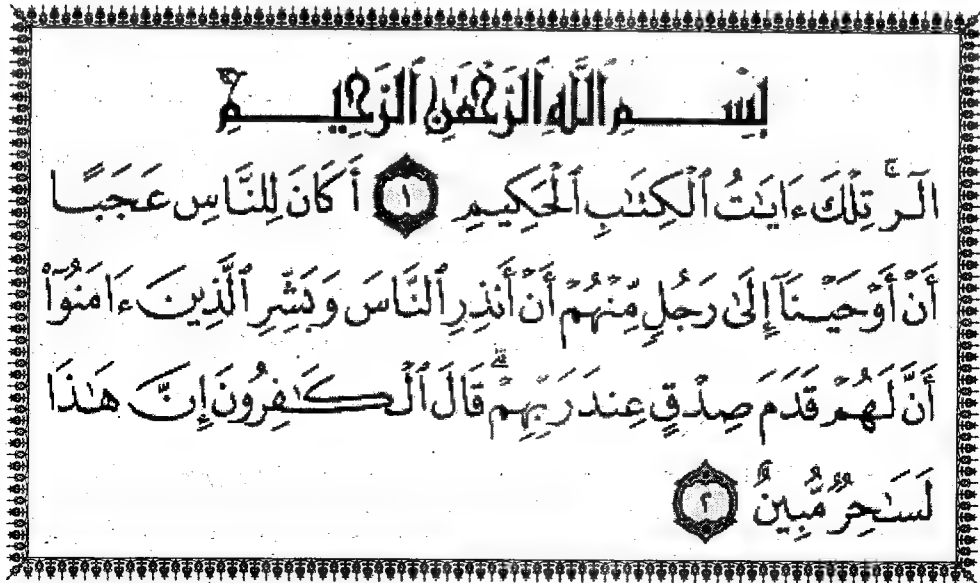 بِسْمِ ٱللَّهِ ٱلرَّحْمَٰنِ ٱلرَّحِيمِ
الٓرۚ تِلْكَ ءَايَٰتُ ٱلْكِتَٰبِ ٱلْحَكِيمِ ١ أَكَانَ لِلنَّاسِ عَجَبًا
أَنْ أَوْحَيْنَآ إِلَىٰ رَجُلٍ مِّنْهُمْ أَنْ أَنذِرِ ٱلنَّاسَ وَبَشِّرِ ٱلَّذِينَ ءَامَنُوٓا۟
أَنَّ لَهُمْ قَدَمَ صِدْقٍ عِندَ رَبِّهِمْۗ قَالَ ٱلْكَٰفِرُونَ إِنَّ هَٰذَا
لَسَٰحِرٌ مُّبِينٌ ٢